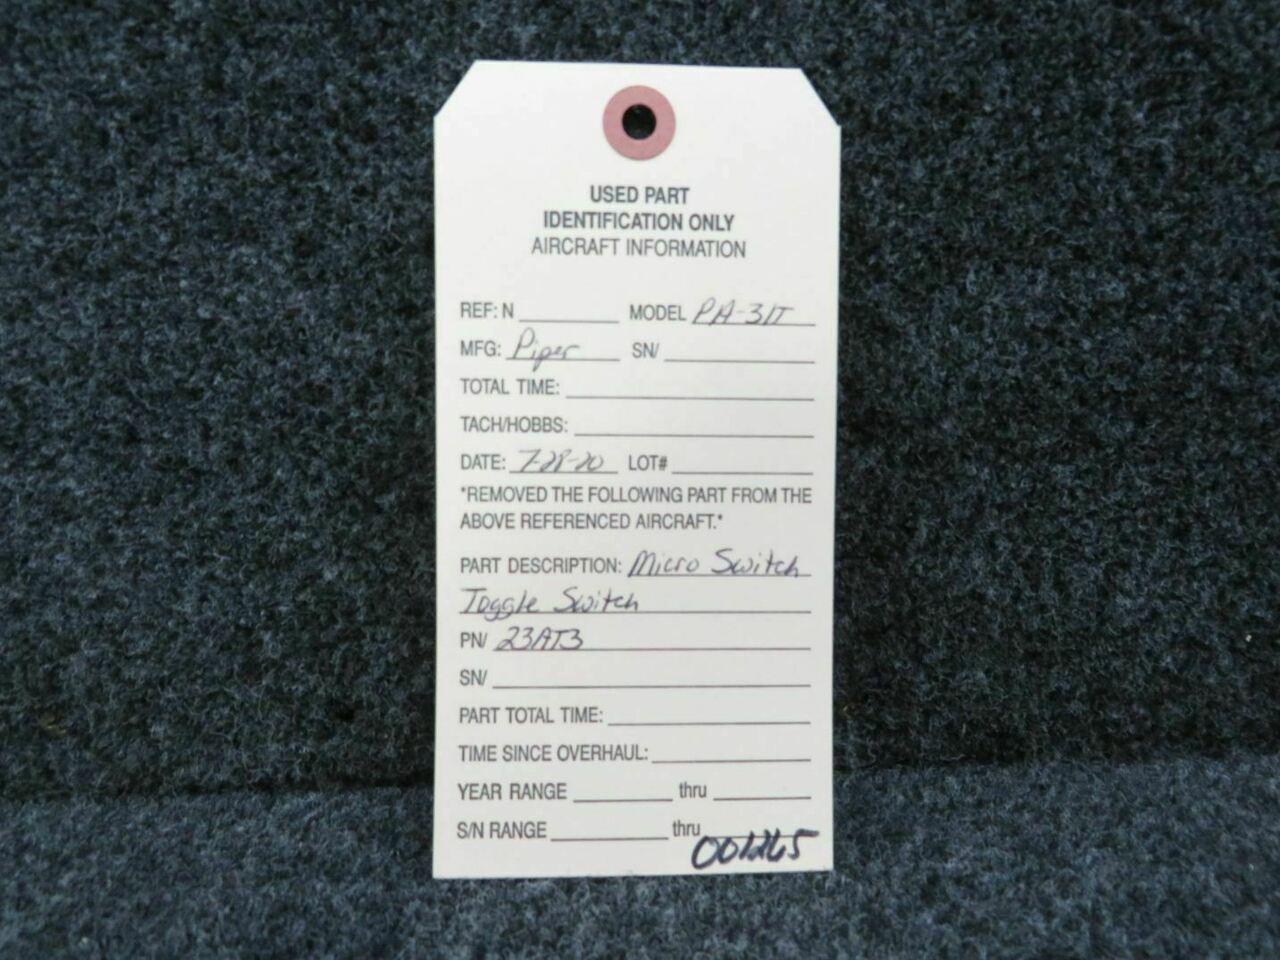 USED PART
IDENTIFICATION ONLY
AIRCRAFT INFORMATION
REF: N MODEL PA-31T
MFG: Piper SN/
TOTAL TIME:
TACH/HOBBS:
DATE: 7-28-20 LOT#
*REMOVED THE FOLLOWING PART FROM THE
ABOVE REFERENCED AIRCRAFT.*
PART DESCRIPTION: Micro Switch
Toggle Switch
PN/ 23AT3
SN/
PART TOTAL TIME:
TIME SINCE OVERHAUL:
YEAR RANGE thru
S/N RANGE thru